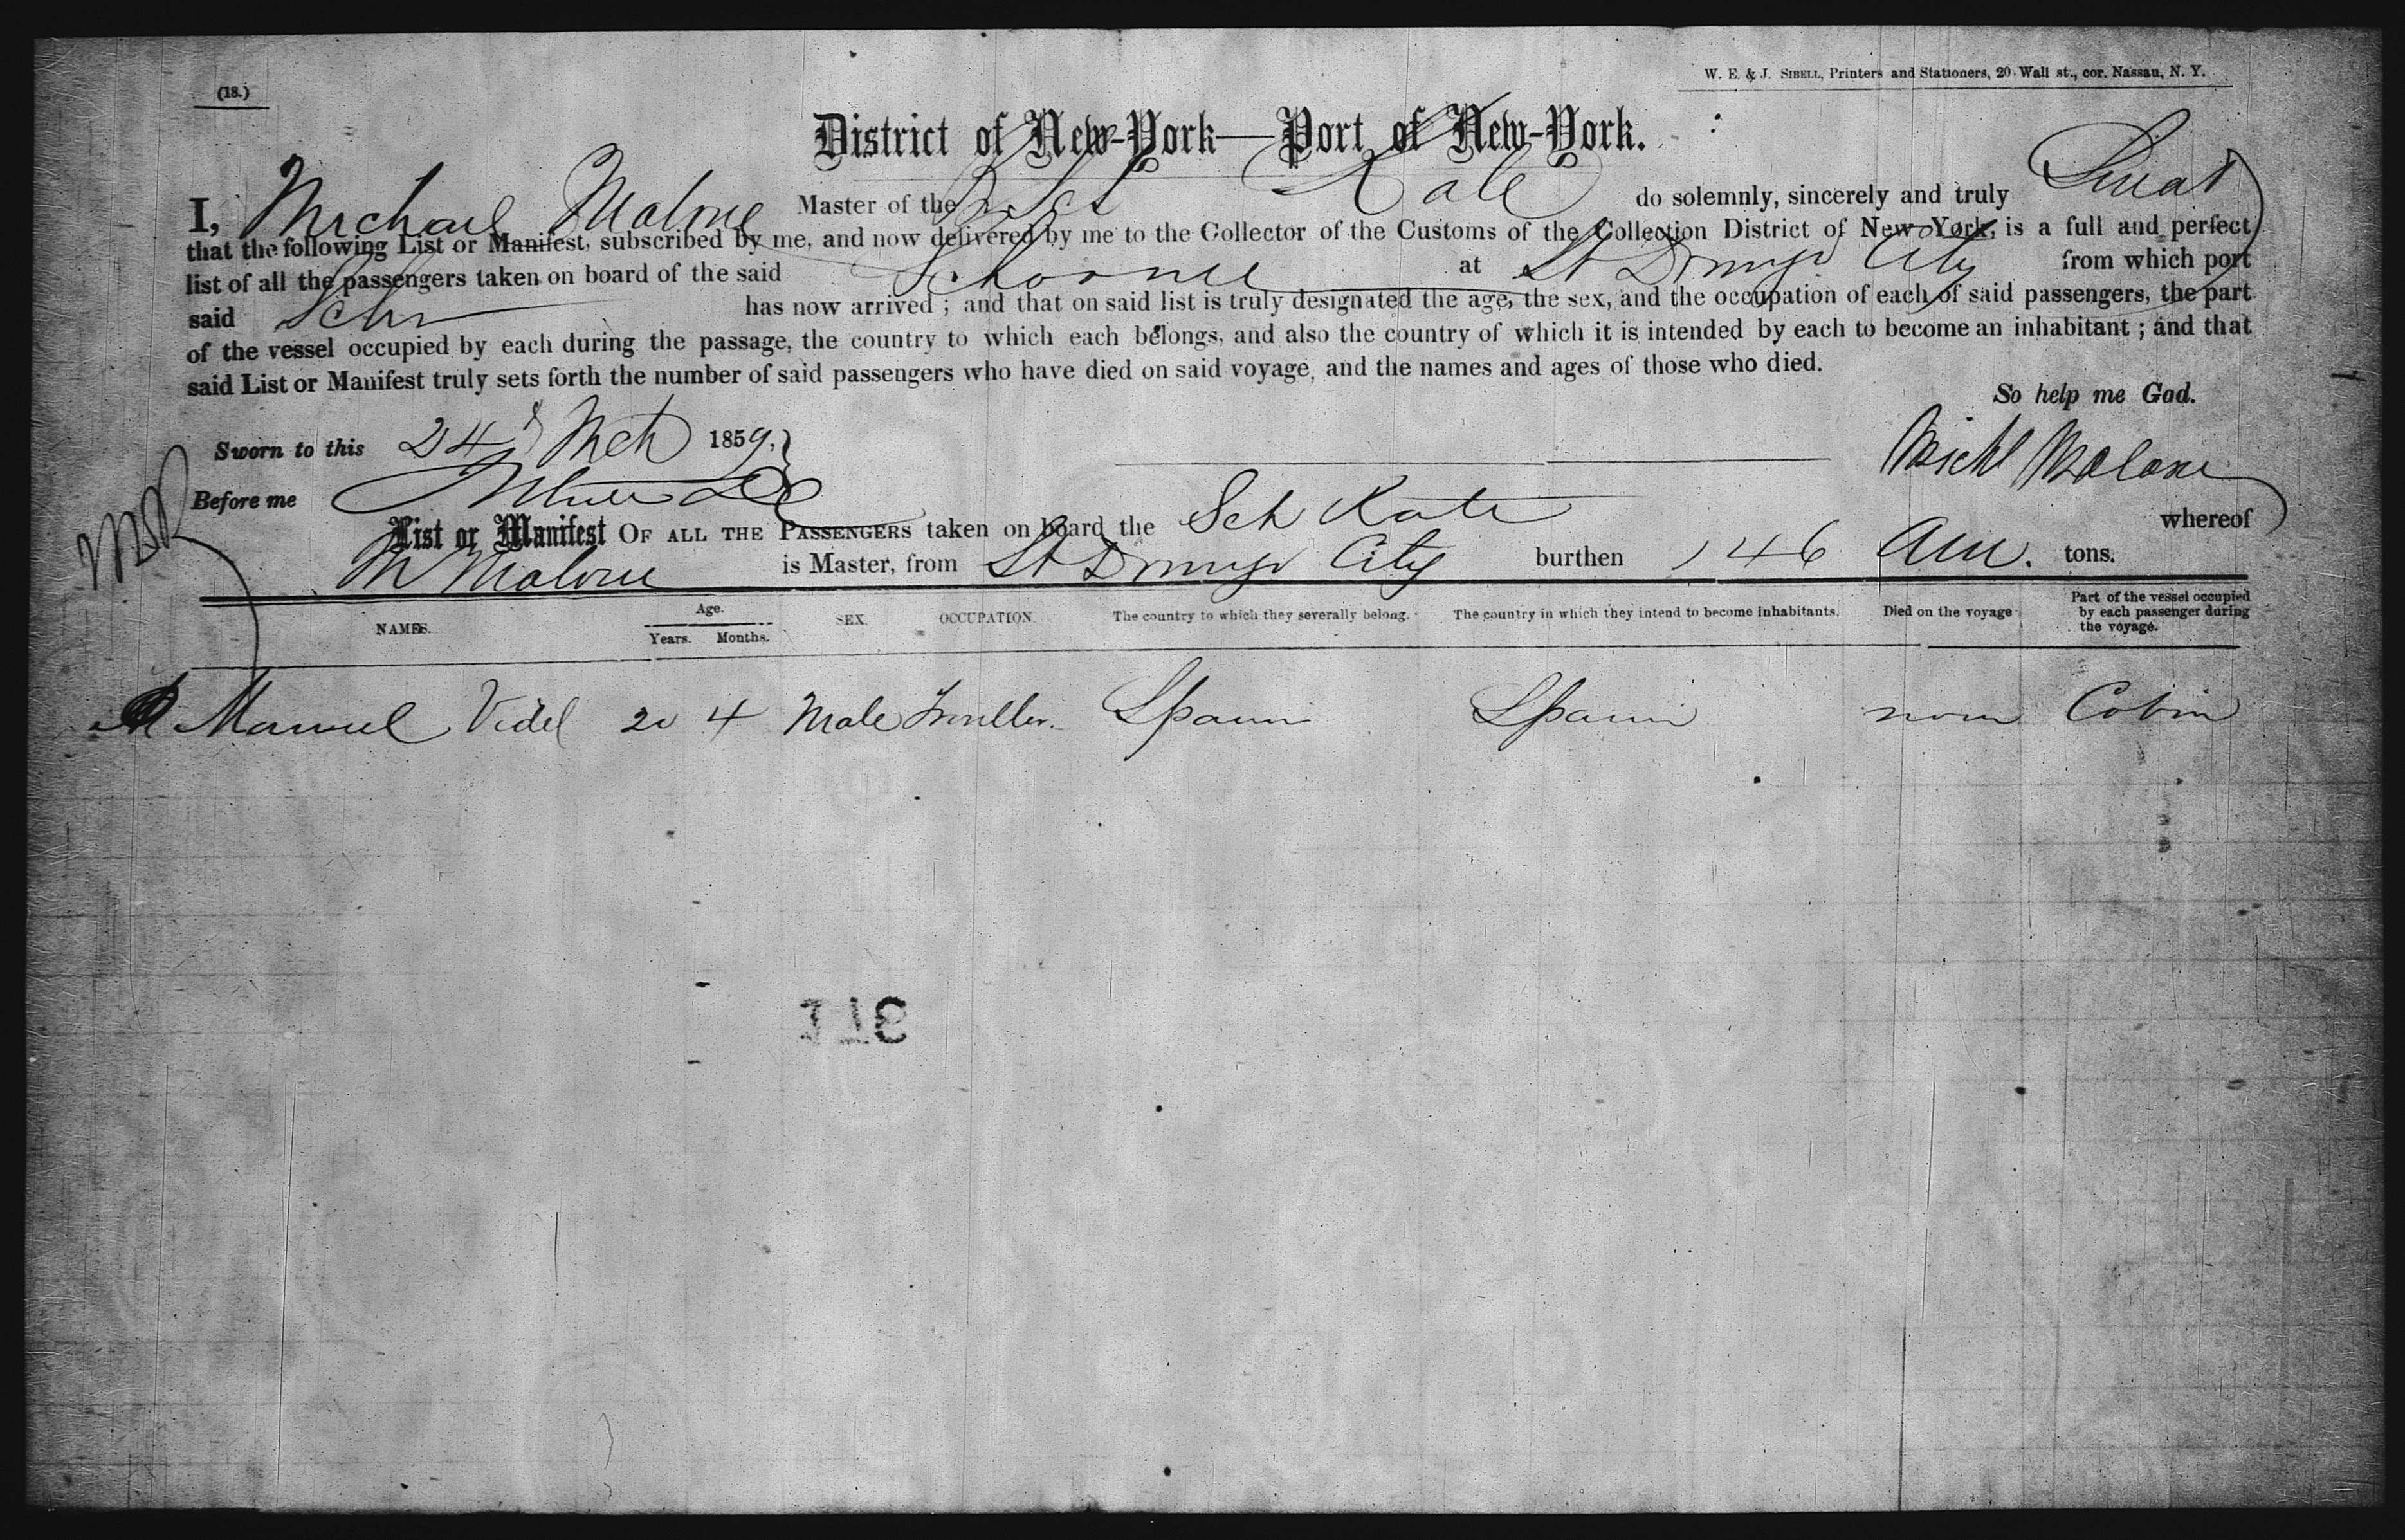 (18.)
W. E. & J. SIBELL, Printers and Stationers, 20 Wall st., cor. Nassau, N. Y.
District of New-York—Port of New-York.
I, Michael Malone Master of the Kate do solemnly, sincerely and truly Swear
that the following List or Manifest, subscribed by me, and now delivered by me to the Collector of the Customs of the Collection District of New-York, is a full and perfect
list of all the passengers taken on board of the said Schooner at St Domingo City from which port
said Schr has now arrived ; and that on said list is truly designated the age, the sex, and the occupation of each of said passengers, the part
of the vessel occupied by each during the passage, the country to which each belongs, and also the country of which it is intended by each to become an inhabitant ; and that
said List or Manifest truly sets forth the number of said passengers who have died on said voyage, and the names and ages of those who died.
So help me God.
Sworn to this 24 Mch 1859,
Michl Malone
Before me
List or Manifest OF ALL THE PASSENGERS taken on board the Sch Kate whereof
M Malone is Master, from St Domingo City burthen 146 Am. tons.
NAMES. Age. Years. Months. SEX. OCCUPATION. The country to which they severally belong. The country in which they intend to become inhabitants. Died on the voyage Part of the vessel occupied by each passenger during the voyage.
Manuel Videl 20 4 Male Spain Spain none Cabin